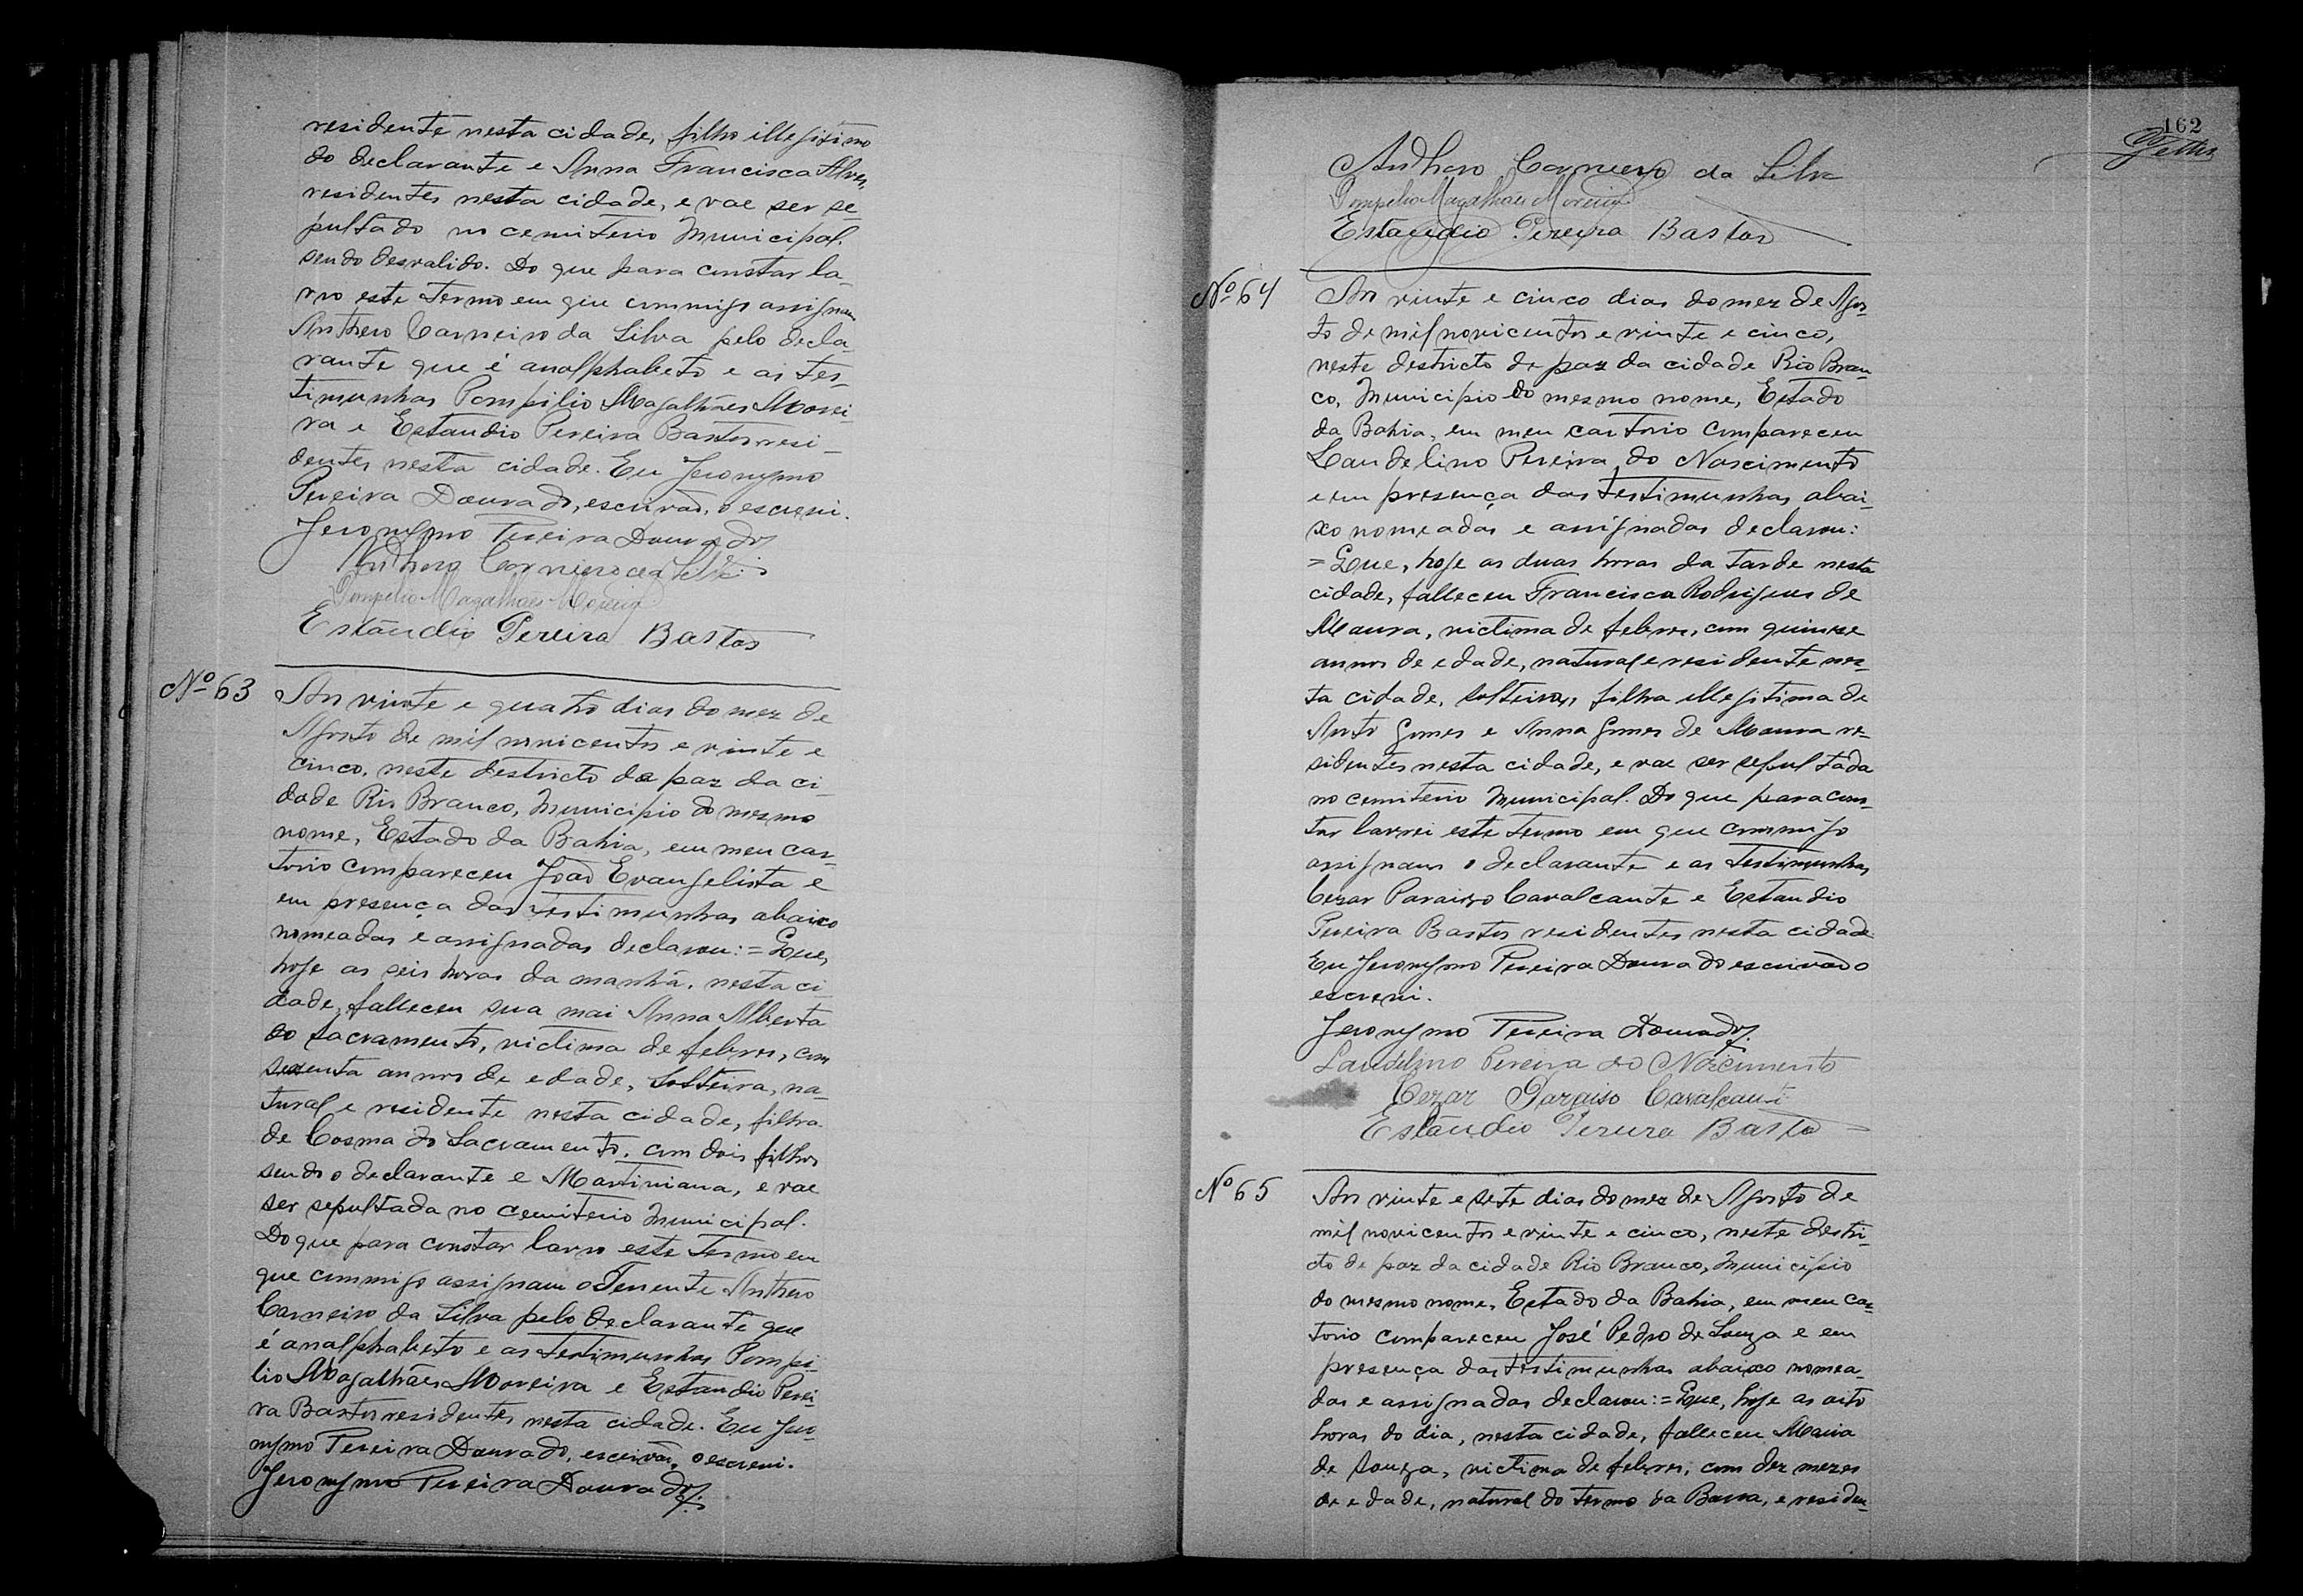 residente nesta cidade, filho illegitimo
do declarante e Anna Francisca Alves,
residentes nesta cidade, e vae ser se-
pultado no cemiterio Municipal.
sendo desvalido. Do que para constar la-
vro este termo em que commigo assignam
Anthero Carneiro da Silva pelo decla-
rante que é analphabeto e as tes-
timunhas Pompilio Magalhães Morei-
ra e Estaudio Pereira Bastos resi-
dentes nesta cidade. Eu Jeronymo
Pereira Dourado, escrivão, o escrevi.
Jeronymo Pereira Dourado
Anthero Carneiro da Silva
Pompilio Magalhães Moreira
Estáudio Pereira Bastos
Nº 63
Ao vinte e quatro dias do mez de
Agosto de mil novicentos e vinte e
cinco, neste destricto de paz da ci-
dade Rio Branco, Municipio do mesmo
nome, Estado da Bahia, em meu car-
torio compareceu João Evangelista e
em presença das testimunhas abaixo
nomeadas e assignadas declarou: = Que,
hoje as seis horas da manhã, nesta ci-
dade, falleceu sua mai Anna Alberta
do Sacramento, victima de febres, com
sesenta annos de edade, solteira, na-
tural e residente nesta cidade, filha
de Cosma do Sacramento, com dois filhos
sendo o declarante e Martiniana, e vae
ser sepultada no cemiterio Municipal.
Do que para constar lavro este termo em
que commigo assignam o Tenente Anthero
Carneiro da Silva pelo declarante que
é analphabeto e as testimunhas Pompi-
lio Magalhães Moreira e Estaudio Perei-
ra Bastos residentes nesta cidade. Eu Jero-
nymo Pereira Dourado, escrivão, o escrevi.
Jeronymo Pereira Dourado
162
Anthero Carneiro da Silva
Pompilio Magalhães Moreira
Estaudio Pereira Bastos
Nº 64
Ao vinte e cinco dias do mez de Agos-
to de mil novicentos e vinte e cinco,
neste destricto de paz da cidade Rio Bran-
co, Municipio do mesmo nome, Estado
da Bahia, em meu cartorio compareceu
Laudelino Pereira do Nascimento
e em presença das testimunhas abai-
xo nomeadas e assignadas declarou:
= Que, hoje as duas horas da tarde nesta
cidade, falleceu Francisca Rodrigues de
Moura, victima de febres, com quinze
annos de edade, natural e residente nes-
ta cidade, solteira, filha illegitima de
Anto Gomes e Anna Gomes de Moura re-
sidentes nesta cidade, e vae ser sepultada
no cemiterio Municipal. Do que para cons-
tar lavrei este termo em que commigo
assignam o declarante e as testimunhas
Cezar Paraizo Cavalcante e Estaudio
Pereira Bastos residentes nesta cidade
Eu Jeronymo Pereira Dourado escrivão o
escrevi.
Jeronymo Pereira Dourado
Laudelino Pereira do Nascimento
Cezar Paraiso Cavalcanti
Estáudio Pereira Bastos
Nº 65
Ao vinte e sete dias do mez de Agosto de
mil novicentos e vinte e cinco, neste destri-
cto de paz da cidade Rio Branco, Municipio
do mesmo nome, Estado da Bahia, em meu car-
torio compareceu José Pedro de Souza e em
presença das testimunhas abaixo nomea-
das e assignadas declarou: = Que, hoje as oito
horas do dia, nesta cidade, falleceu Maria
de Souza, victima de febres, com dez mezes
de edade, natural do termo da Barra, e residen-